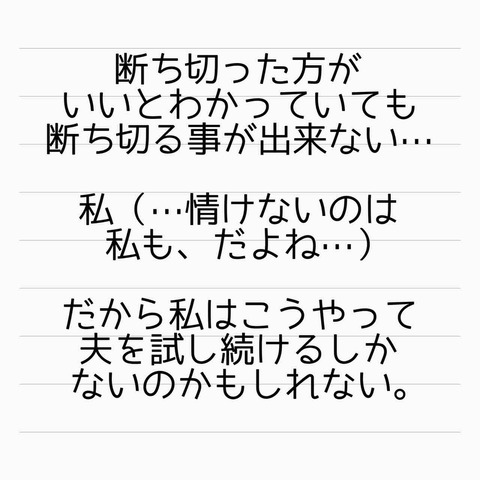 断ち切った方が
いいとわかっていても
断ち切る事が出来ない…
私（…情けないのは
私も、だよね…）
だから私はこうやって
夫を試し続けるしか
ないのかもしれない。